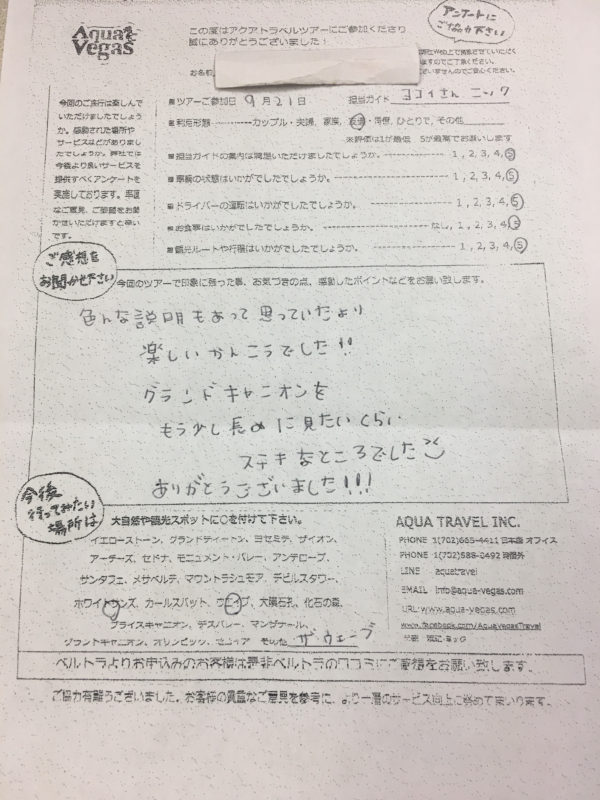 Aqua Vegas
この度はアクアトラベルツアーにご参加くださり
誠にありがとうございました!
アンケートに
ご協力下さい
お名前
今回のご旅行は楽しんで
いただけましたでしょう
か。感動された場所や
サービスなどがありまし
たでしょうか。弊社では
今後より良いサービスを
提供すべくアンケートを
実施しております。率直
なご意見、ご感想をお聞
かせいただけますと幸い
です。
ツアーご参加日 9月21日 担当ガイド ヨコイさん ニック
利用形態 カップル・夫婦、家族、友達・同僚、ひとりで、その他
※評価は1が最低 5が最高でお願いします
担当ガイドの案内は満足いただけましたでしょうか。 1, 2, 3, 4, 5
車輌の状態はいかがでしたでしょうか。 1, 2, 3, 4, 5
ドライバーの運転はいかがでしたでしょうか。 1, 2, 3, 4, 5
お食事はいかがでしたでしょうか。 なし, 1, 2, 3, 4, 5
観光ルートや行程はいかがでしたでしょうか。 1, 2, 3, 4, 5
ご感想を
お聞かせ下さい
今回のツアーで印象に残った事、お気づきの点、感動したポイントなどをお願い致します。
色んな説明もあって思っていたより
楽しいかんこうでした!!
グランドキャニオンを
もう少し長めに見たいくらい
ステキなところでした
ありがとうございました!!!
今後
行ってみたい
場所は
大自然や観光スポットに〇を付けて下さい。
イエローストーン、グランドティートン、ヨセミテ、ザイオン、
アーチーズ、セドナ、モニュメント・バレー、アンテロープ、
サンタフェ、メサベルデ、マウントラシュモア、デビルスタワー、
ホワイトサンズ、カールスバット、ウェイブ、大隕石孔、化石の森、
ブライスキャニオン、デスバレー、マンザナール、
グランドキャニオン、オリンピック、セコイア その他 ザウェーブ
AQUA TRAVEL INC.
PHONE 1(702)665-4411 日本語 オフィス
PHONE 1(702)588-0492 時間外
LINE aquatravel
EMAIL info@aqua-vegas.com
URL: www.aqua-vegas.com
www.facebook.com/AquavegasTravel
ベルトラよりお申込みのお客様は是非ベルトラの口コミにご感想をお願い致します。
ご協力有難うございました。お客様の貴重なご意見を参考に、より一層のサービス向上に努めてまいります。